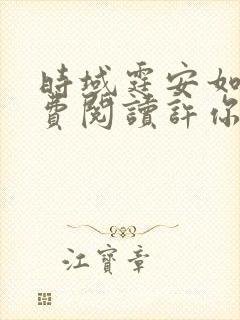 時域霆安如
費閱讀許你
江寶章